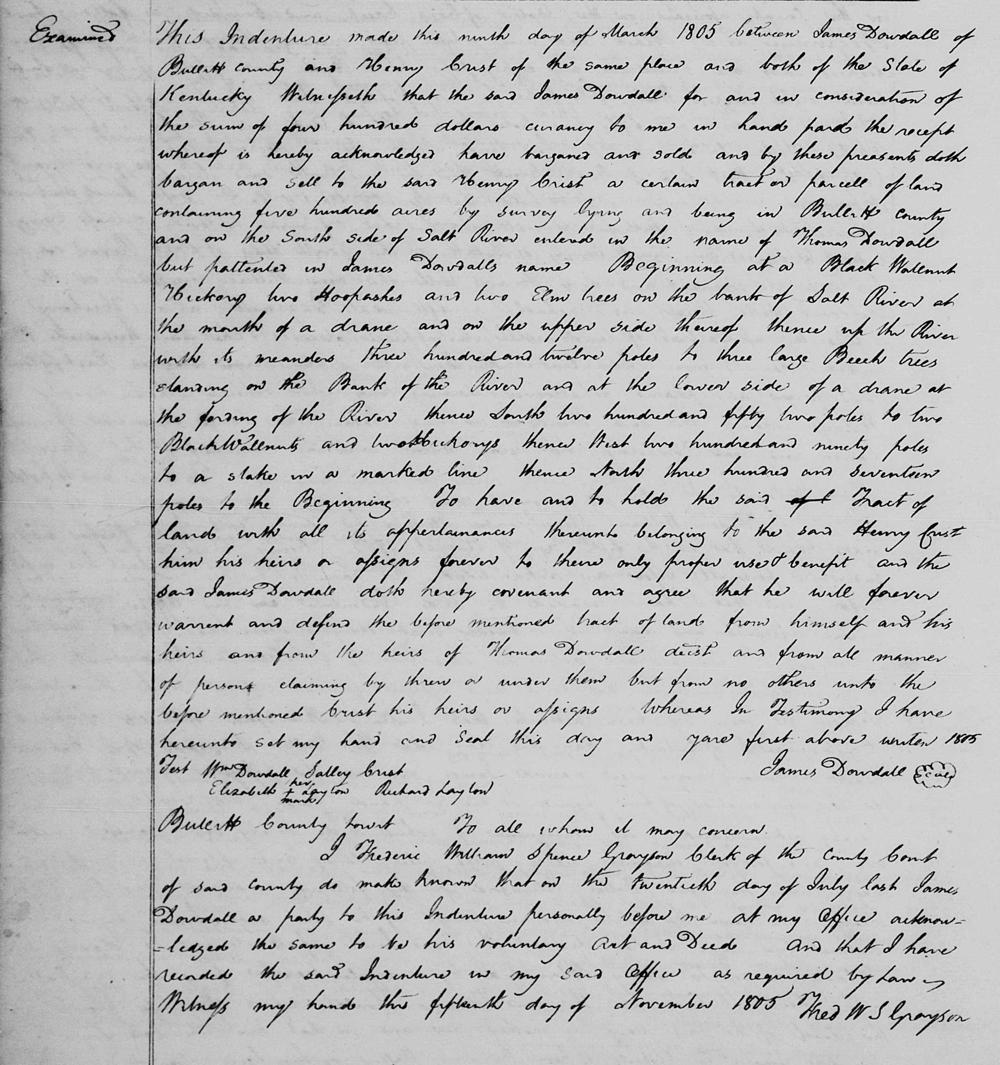 Examined
This Indenture made this ninth day of March 1805 between James Dowdall of
Bullitt County and Henry Crist of the same place and both of the State of
Kentucky Witnesseth that the said James Dowdall for and in consideration of
the sum of four hundred dollars curancy to me in hand paid the recept
whereof is hereby acknowledged have barganed and sold and by these preasents doth
bargan and sell to the said Henry Crist a certain tract or parcell of land
containing five hundred acres by survey lying and being in Bullitt County
and on the South side of Salt River entered in the name of Thomas Dowdall
but pattented in James Dowdalls name Beginning at a Black Wallnut
Hickory two Hoopashes and two Elm trees on the bank of Salt River at
the mouth of a drane and on the upper side thereof thence up the River
with its meanders three hundred and twelve poles to three large Beech trees
standing on the Bank of the River and at the lower side of a drane at
the fording of the River thence South two hundred and fifty two poles to two
Black Wallnuts and two Hickorys thence West two hundred and ninety poles
to a stake in a marked line thence North three hundred and seventeen
poles to the Beginning To have and to hold the said of t Tract of
land with all its appertainances thereunto belonging to the said Henry Crist
him his heirs or assigns forever to theire only proper use & benefit and the
said James Dowdall doth hereby covenant and agree that he will forever
warrent and defend the before mentioned tract of land from himself and his
heirs and from the heirs of Thomas Dowdall decist and from all manner
of persons claiming by threw or under them but from no others unto the
before mentioned Crist his heirs or assigns Whereas In Testimony I have
hereunto set my hand and seal this day and yare first above writen 1805
Test Wm Dowdall Salley Crist James Dowdall Seal
Elizabeth her + mark Layton Richard Layton
Bullitt County Court To all whom it may concern
I Frederic William Spence Grayson Clerk of the County Court
of said county do make known that on the twentieth day of July last James
Dowdall a party to this Indenture personally before me at my Office acknow-
-ledged the same to be his voluntary Act and Deed And that I have
recorded the said Indenture in my said Office as required by Law
Witness my hand this fifteenth day of November 1805 Fred W S Grayson